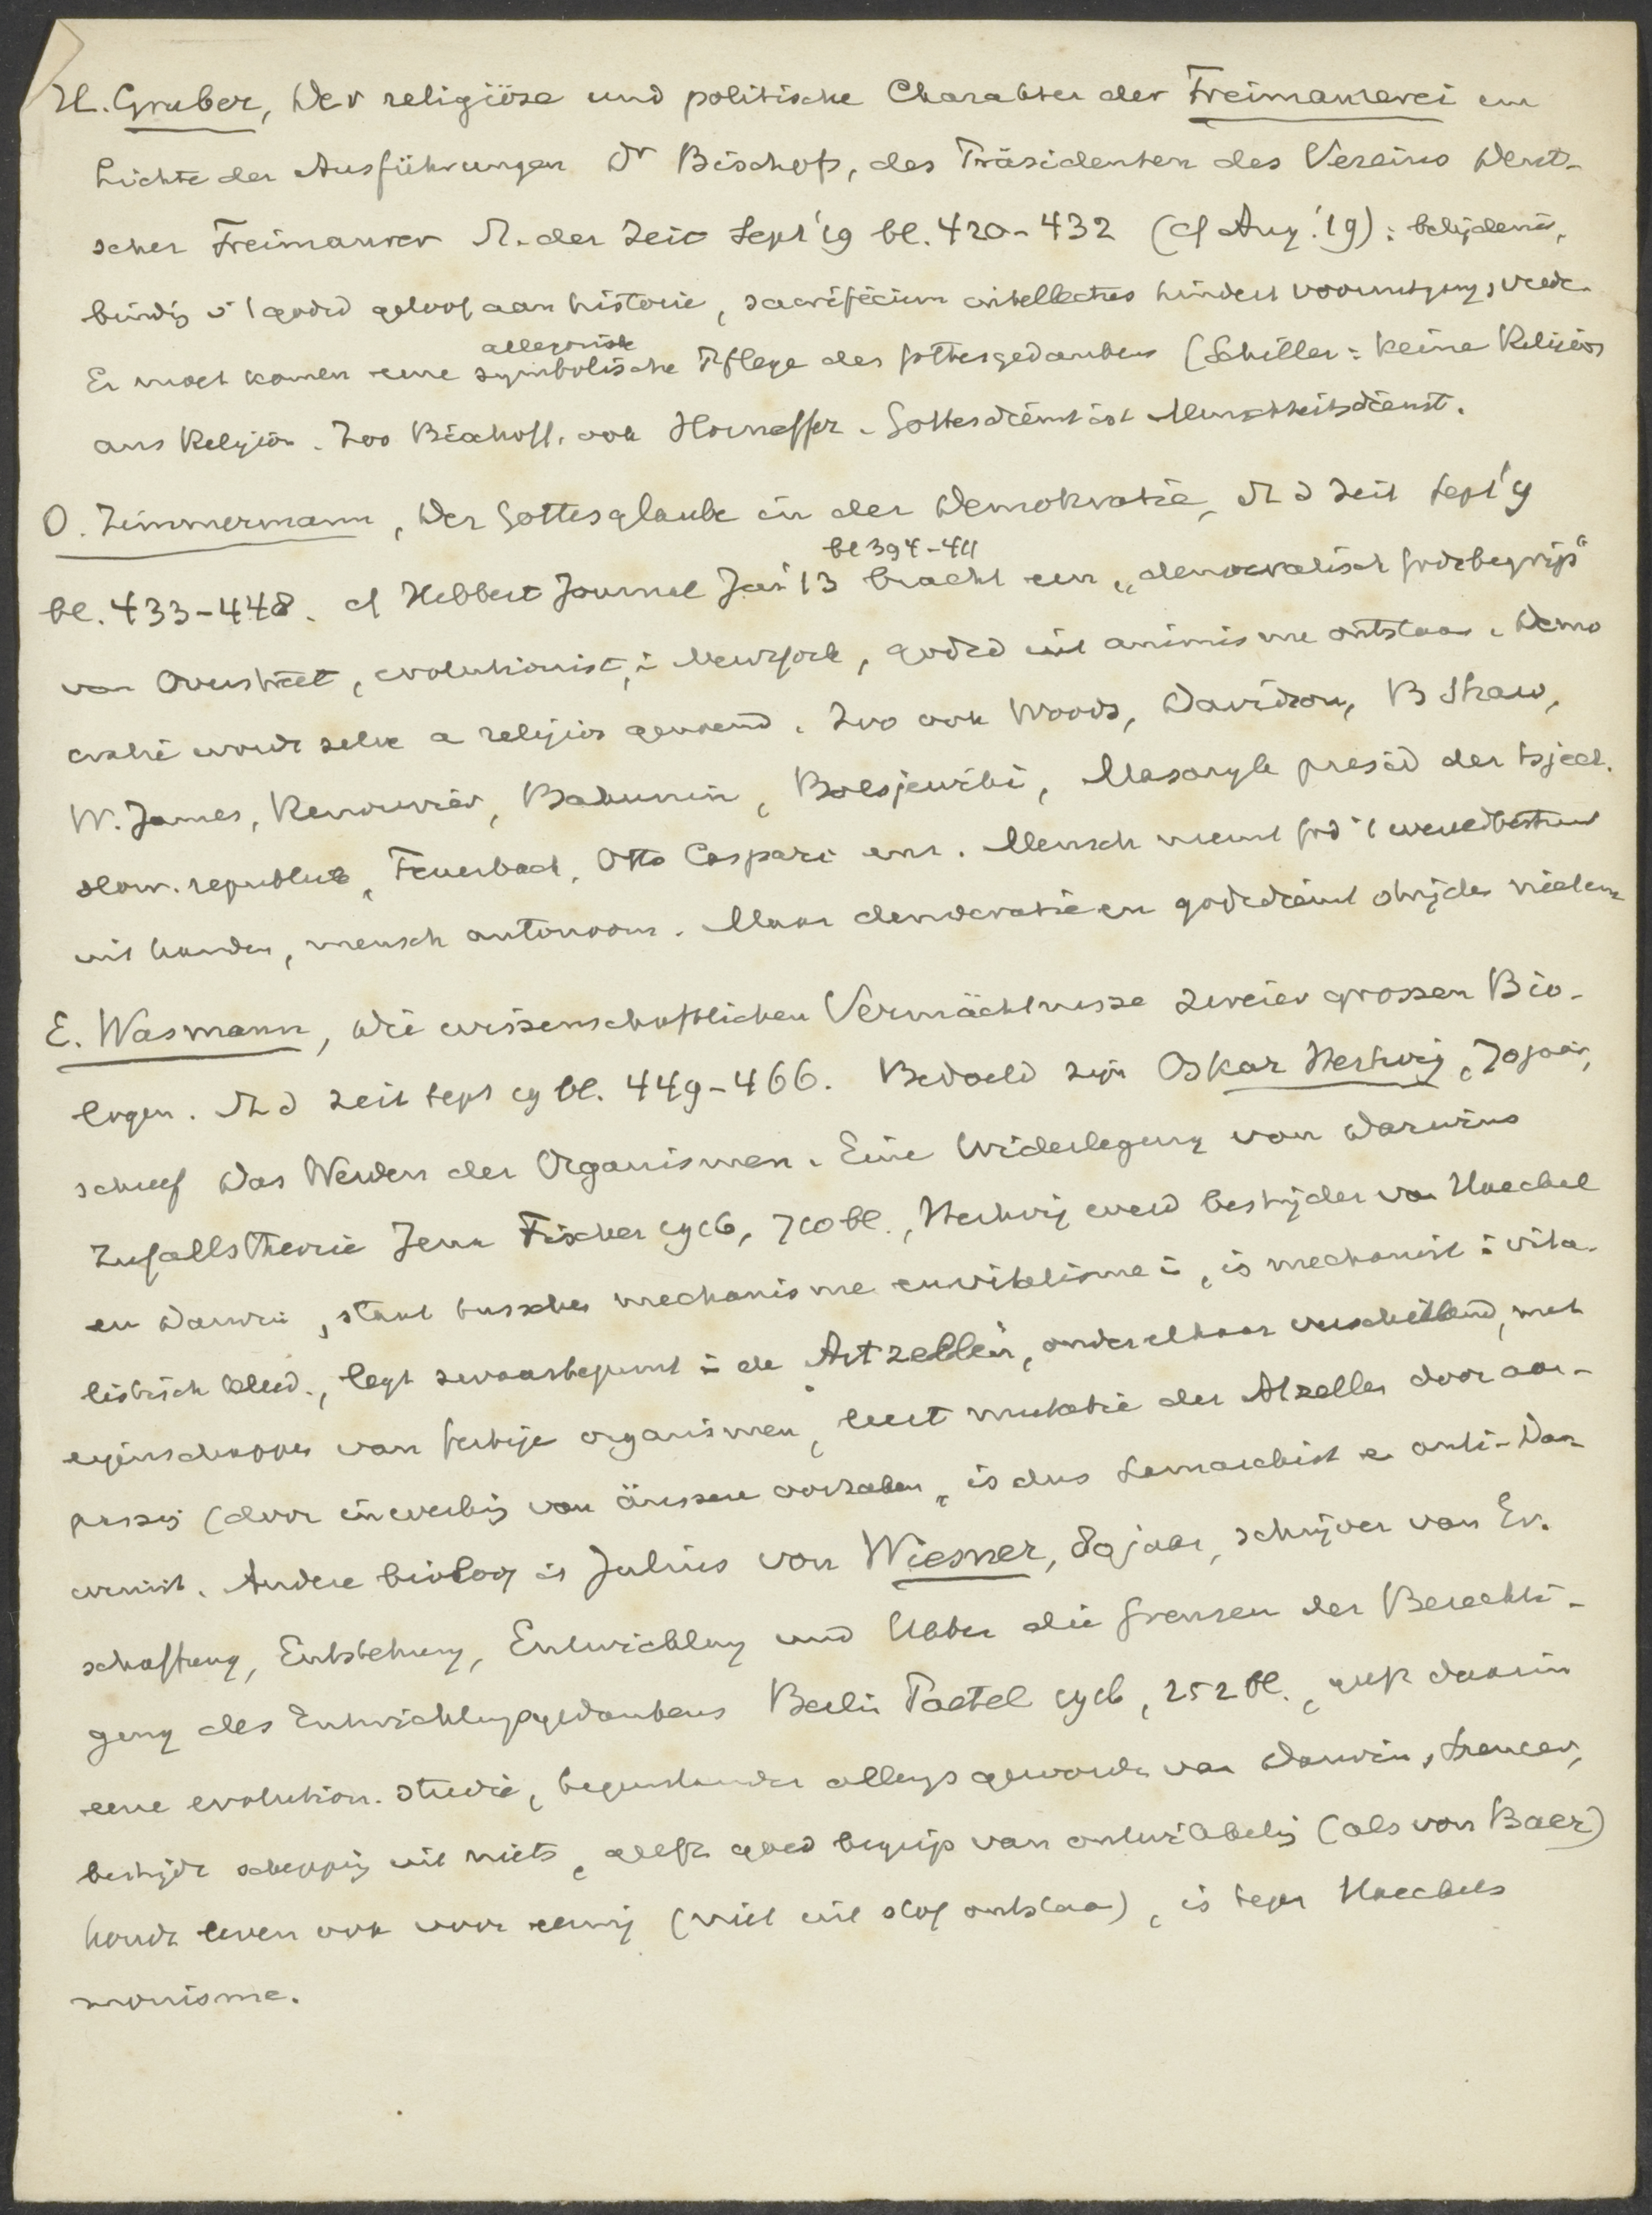 H. Gruber, Der religiöse und politische Charakter der Freimaurerei im
Lichte der Ausführungen Dr Bischofs, des Präsidenten des Vereins Deut-
scher Freimaurer St. der Zeit Sept '19 bl. 420-432 (cf Aug. '19): belijdenis,
geloof aan historie, sacrificium intellectus hindert vooruitgang, vrede.
allegorisch
Er moet komen eene symbolische Pflege des Gottesgedankens (Schiller: keine Religion
aus Religion. Zoo Bischoff, ook Horneffer. Gottesdienst ist Menschheitsdienst.
O. Zimmermann, Der Gottesglaube in der Demokratie, St d Zeit Sept '19
bl 394-411
bl. 433-448. cf Hibbert Journal Jan '13 bracht een „democratisch godsbegrip"
van Overstreet, evolutionist, i Newyork, godsd uit animisme ontstaan. Demo
cratie wordt zelve a religion genoemd. Zoo ook Woods, Davidson, B Shaw,
W. James, Renouvier, Bakunin, Bolsjewiki, Masaryk presid der tsjech.
slow. republiek, Feuerbach, Otto Caspari enz. Mensch neemt God 't wereldbestuur
uit handen, mensch autonoom. Maar democratie en godsdienst strijden niet
E. Wasmann, Die wissenschaftlichen Vermächtnisse zweier grossen Bio-
logen. St d Zeit Sept 19 bl. 449-466. Bedoeld zijn Oskar Hertwig, 70 jaar,
schreef Das Werden der Organismen. Eine Widerlegung von Darwins
Zufallstheorie Jena Fischer 1916, 710 bl., Hertwig werd bestrijder van Haeckel
en Darwin, staat tusschen mechanisme en vitalisme i, is mechanist i vita-
listisch kleed., legt zwaartepunt i de Artzellen, onder elkaar verschillend, met
eigenschappen van organismen, leert mutatie der Artzellen door aan-
passing (door inwerking van äussere oorzaken, is dus Lamarckist e anti-Dar
winist. Andere bioloog is Julius von Wiesner, 80 jaar, schrijver van Er.
schaffung, Entstehung, Entwicklung und Ueber die Grenzen der Berechti-
gung des Entwicklungsgedankens Berlin Paetel 1916, 252 bl., geeft daarin
eene evolution. studie, tegenstander allengs geworden van Darwin, Spencer,
bestrijdt schepping uit niets, geeft goed begrip van ontwikkeling (als von Baer)
houdt leven ook voor eeuwig (niet uit stof ontstaan), is tegen Haeckels
monisme.